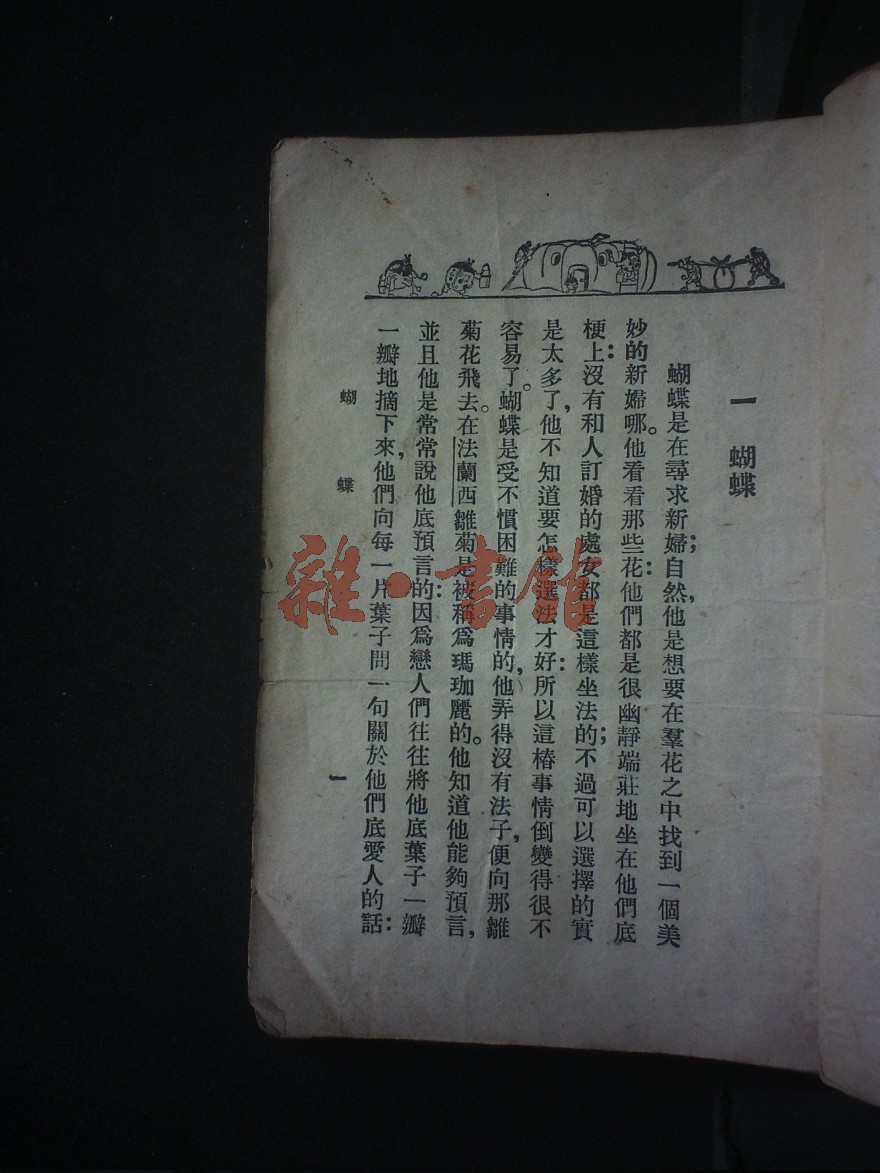 一 蝴蝶
蝴蝶是在尋求新婦；自然，他是想要在羣花之中找到一個美
妙的新婦哪。他看看那些花：他們都是很幽靜端莊地坐在他們底
梗上：沒有和人訂婚的處女都是這樣坐法的；不過可以選擇的實
是太多了，他不知道要怎樣選法才好：所以這樁事情倒變得很不
容易了。蝴蝶是受不慣困難的事情的，他弄得沒有法子，便向那雛
菊花飛去。在法蘭西雛菊是被稱爲瑪珈麗的。他知道他能夠預言，
並且他是常常說他底預言的：因爲戀人們往往將他底葉子一瓣
一瓣地摘下來，他們向每一片葉子問一句關於他們底愛人的話：
蝴蝶
一
雜·書館